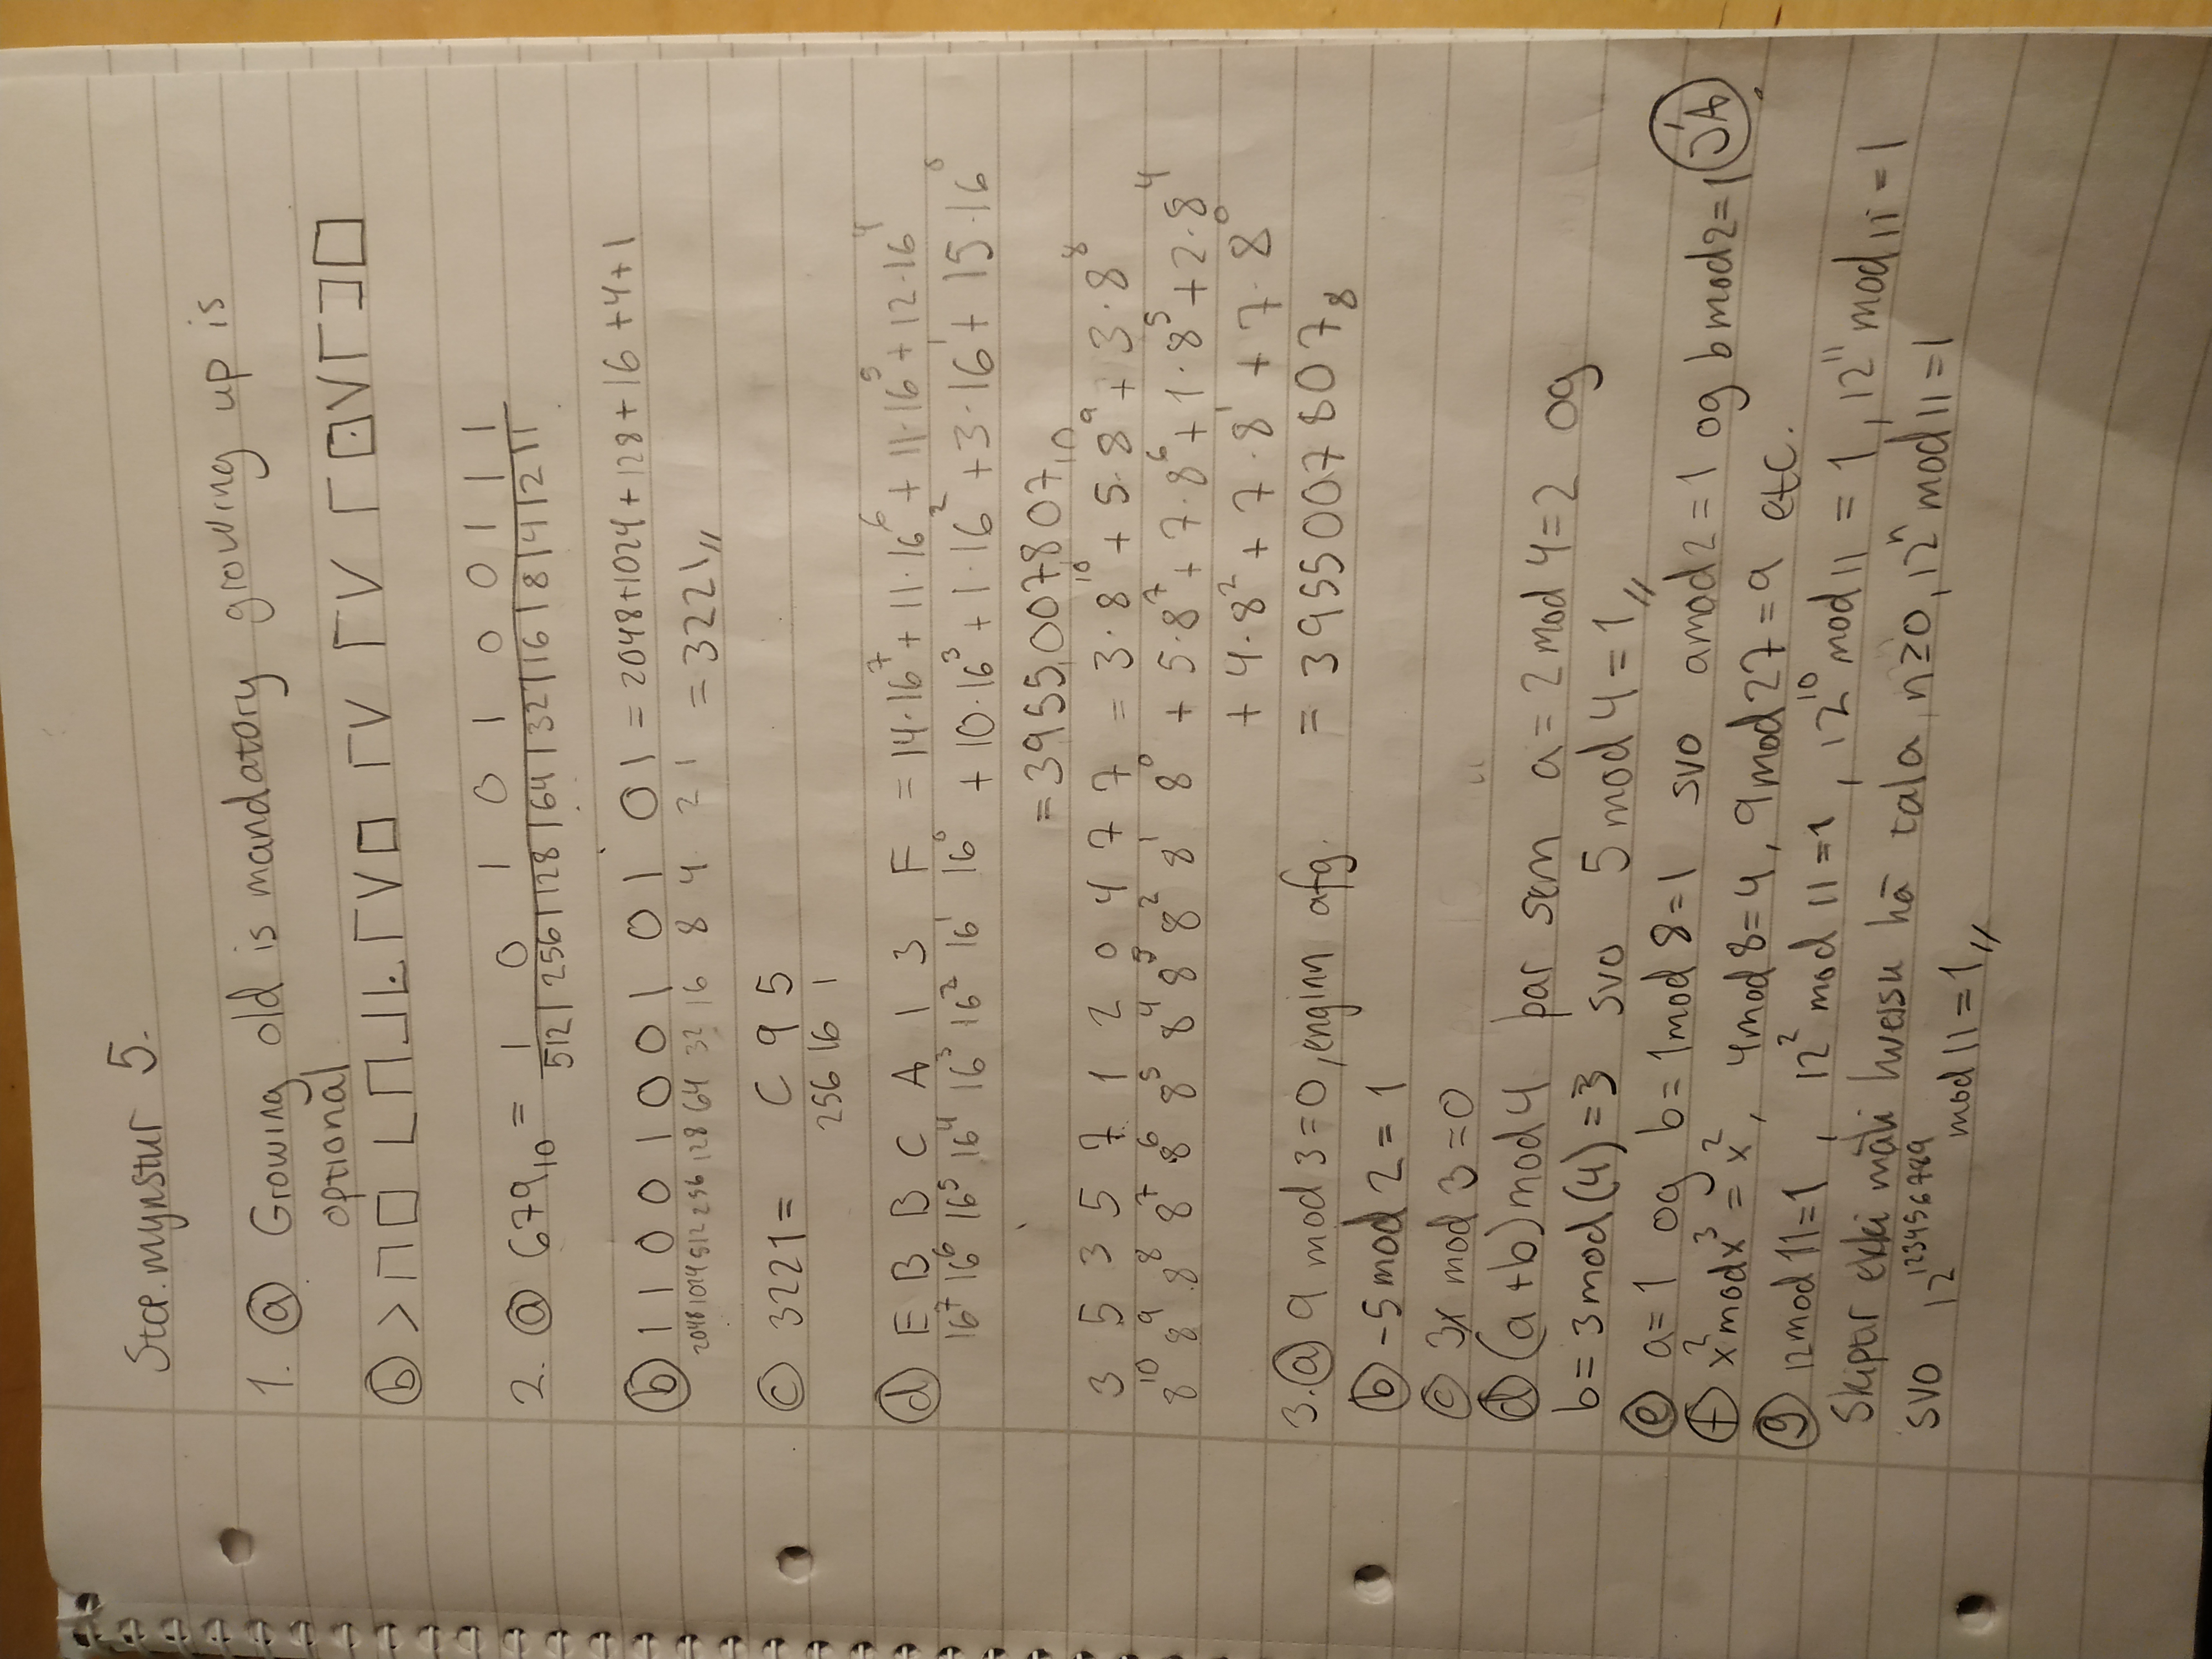 Stæ.mynstur 5.
1. ⓐ Growing old is mandatory growing up is
optional
ⓑ
2. ⓐ 679₁₀ = 1 0 1 0 1 0 0 1 1 1
512 | 256 | 128 | 64 | 32 | 16 | 8 | 4 | 2 | 1
ⓑ 1 1 0 0 1 0 0 1 0 1 0 1 = 2048+1024+128+16+4+1
2048 1024 512 256 128 64 32 16 8 4 2 1 = 3221,,
ⓒ 3221 = C 9 5
256 16 1
ⓓ E B B C A 1 3 F = 14·16⁷ + 11·16⁶ + 11·16⁵ + 12·16⁴
16⁷ 16⁶ 16⁵ 16⁴ 16³ 16² 16¹ 16⁰ + 10·16³ + 1·16² + 3·16¹ + 15·16⁰
= 3955007807₁₀
3 5 3 5 7 1 2 0 4 7 7 = 3·8¹⁰ + 5·8⁹ + 3·8⁸
8¹⁰ 8⁹ 8⁸ 8⁷ 8⁶ 8⁵ 8⁴ 8³ 8² 8¹ 8⁰ + 5·8⁷ + 7·8⁶ + 1·8⁵ + 2·8⁴
+ 4·8² + 7·8¹ + 7·8⁰
3. ⓐ 9 mod 3 = 0, enginn afg. = 3955007807₈
ⓑ -5 mod 2 = 1
ⓒ 3x mod 3 = 0
ⓓ (a+b) mod 4 þar sem a = 2 mod 4 = 2 og
b = 3 mod (4) = 3 svo 5 mod 4 = 1,,
ⓔ a = 1 og b = 1 mod 8 = 1 svo a mod 2 = 1 og b mod 2 = 1 JÁ
ⓕ x² mod x³ = x², 4 mod 8 = 4, 9 mod 27 = 9 etc.
ⓖ 12 mod 11 = 1, 12² mod 11 = 1, 12¹⁰ mod 11 = 1, 12¹¹ mod 11 = 1
Skiptir ekki máli hversu há tala n≥0, 12ⁿ mod 11 = 1
svo 12¹²³⁴⁵⁶⁷⁸⁹ mod 11 = 1,,